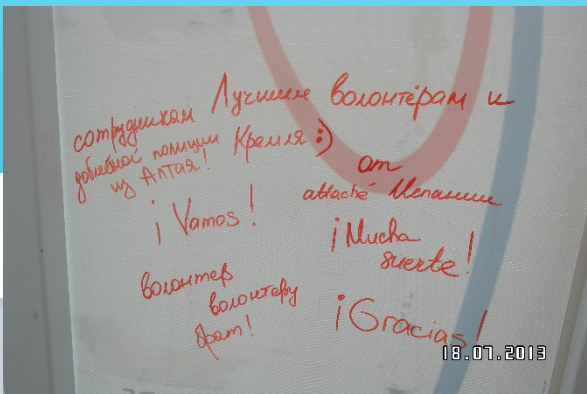 Лучшим волонтёрам и
сотрудникам
доблестной полиции Кремля :)
из Алтая!
от
attaché Испании
¡Vamos!
¡Mucha
suerte!
волонтер
волонтеру
брат!
¡Gracias!
18.07.2013